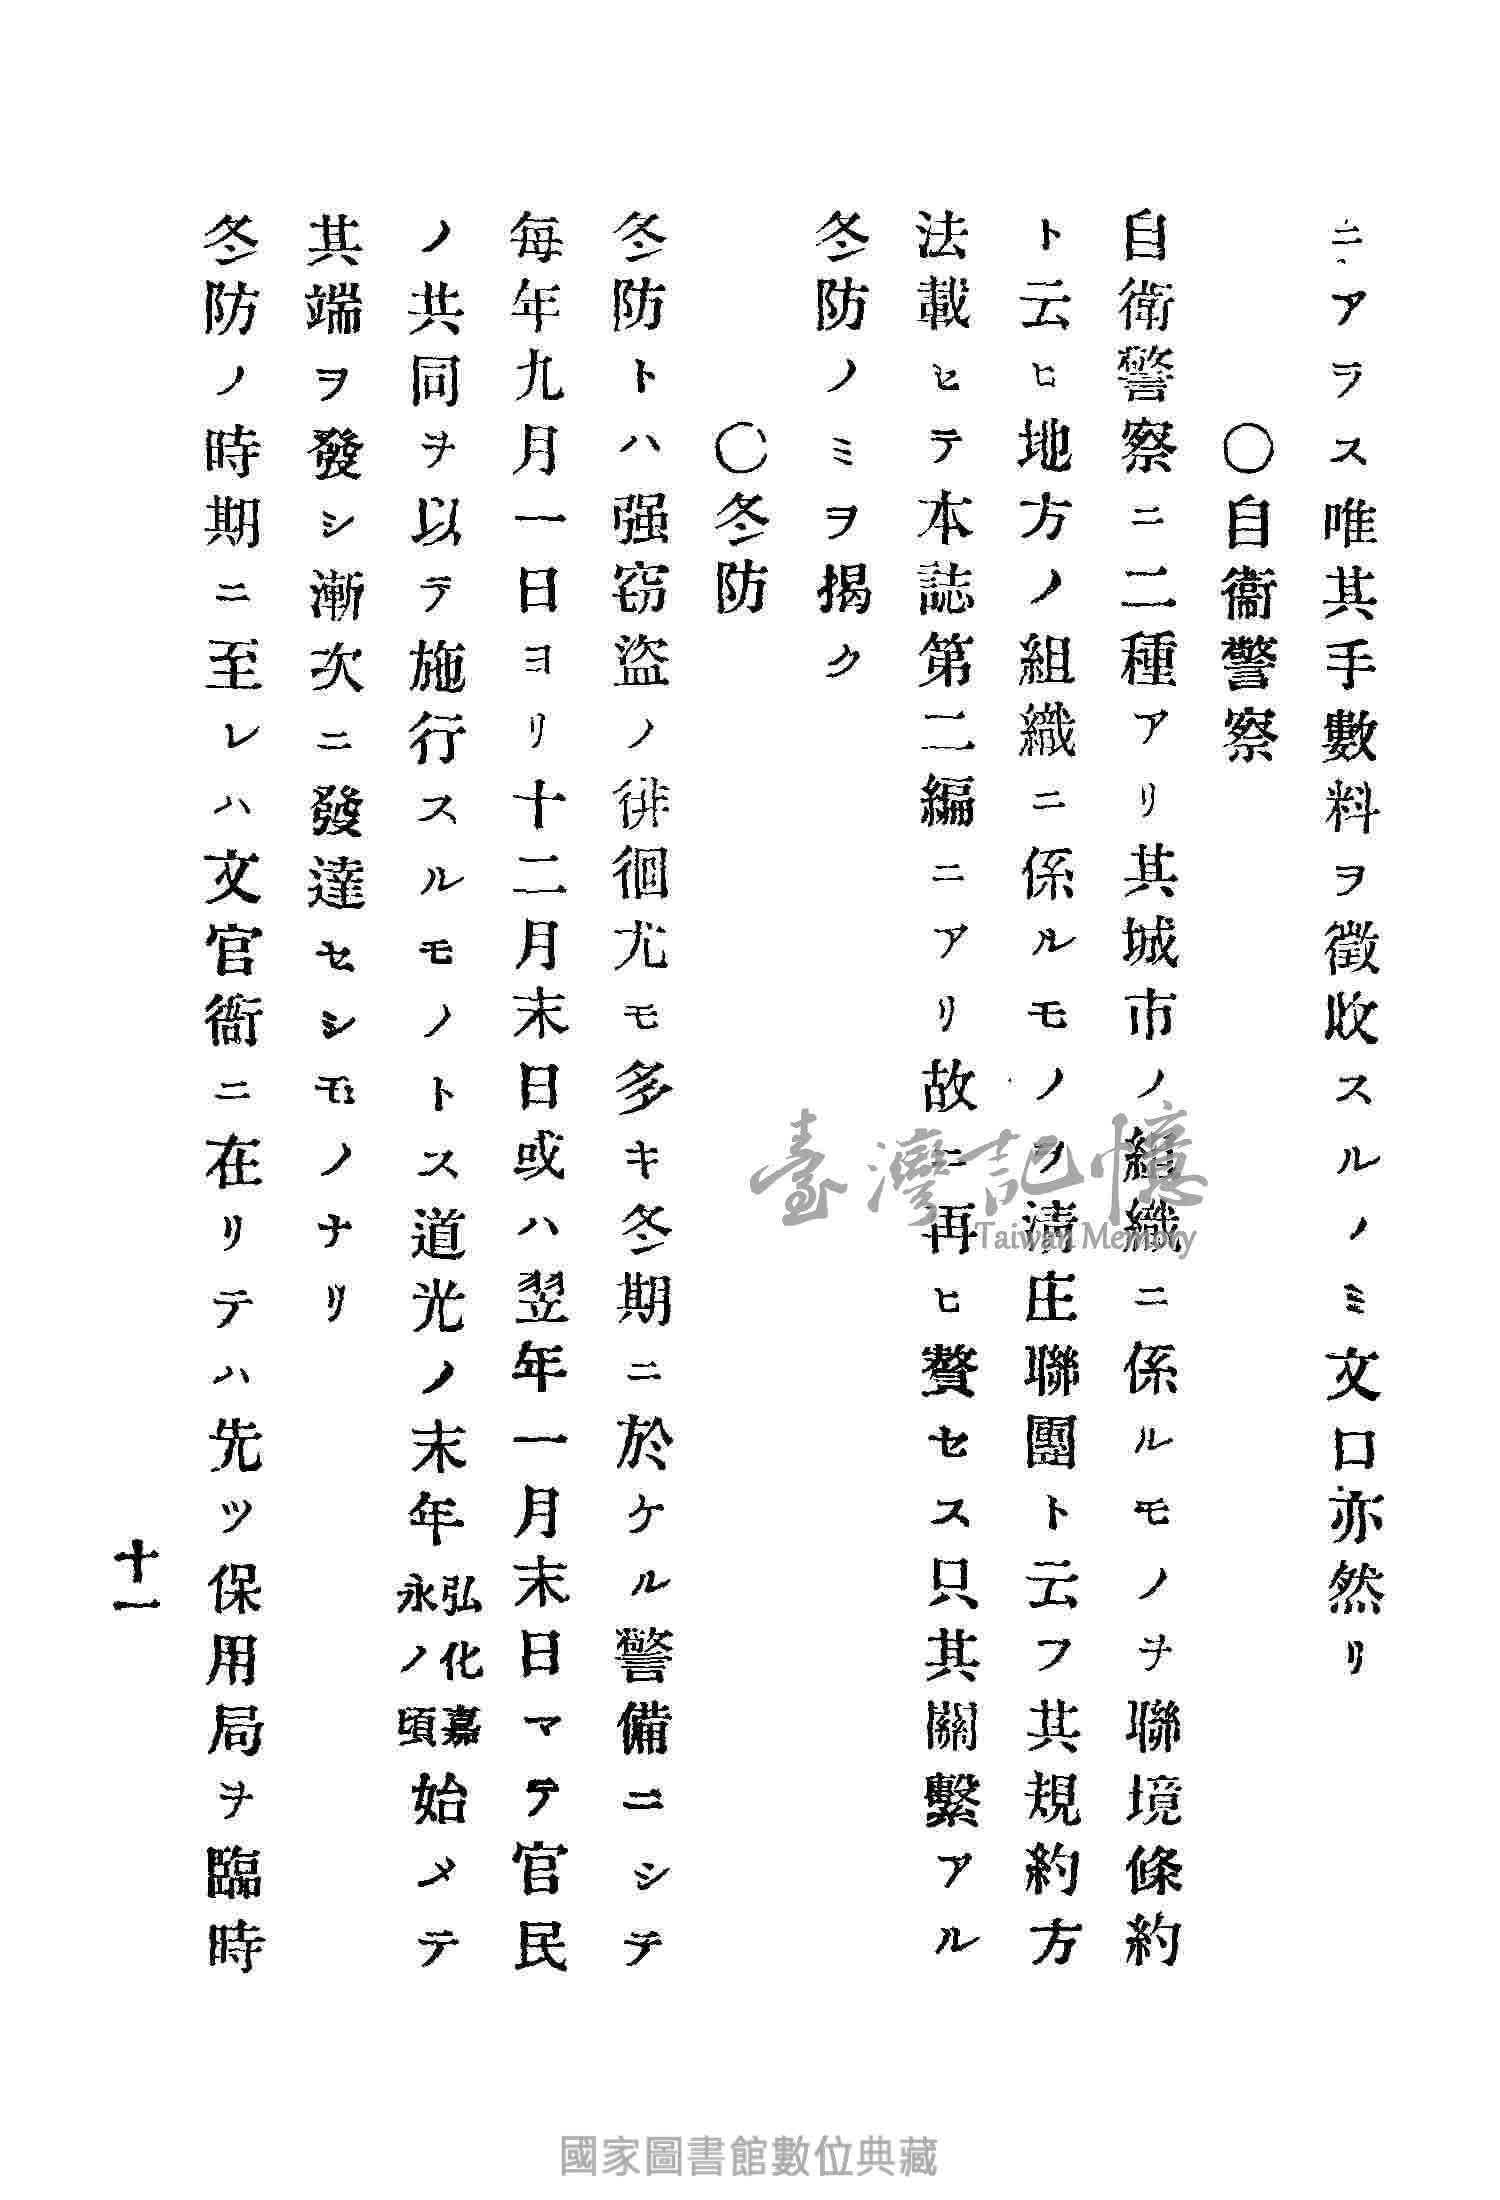 ニアラス唯其手數料ヲ徵收スルノミ文口亦然リ
〇自衞警察
自衛警察ニ二種アリ其城市ノ組織ニ係ルモノヲ聯境條約
ト云ヒ地方ノ組織ニ係ルモノヲ淸庄聯團ト云フ其規約方
法載セテ本誌第二編ニアリ故ニ再ヒ贅セス只其關繫アル
冬防ノミヲ揭ク
〇冬防
冬防トハ强窃盜ノ徘徊尤モ多キ冬期ニ於ケル警備ニシテ
每年九月一日ヨリ十二月末日或ハ翌年一月末日マテ官民
ノ共同ヲ以テ施行スルモノトス道光ノ末年弘化嘉永ノ頃始メテ
其端ヲ發シ漸次ニ發達セシモノナリ
冬防ノ時期ニ至レハ文官衙ニ在リテハ先ツ保甲局ヲ臨時
十一
臺灣記憶
Taiwan Memory
國家圖書館數位典藏